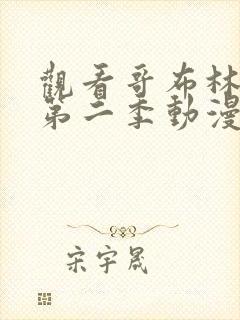 觀看哥布林
第二季動漫
宋宇晟